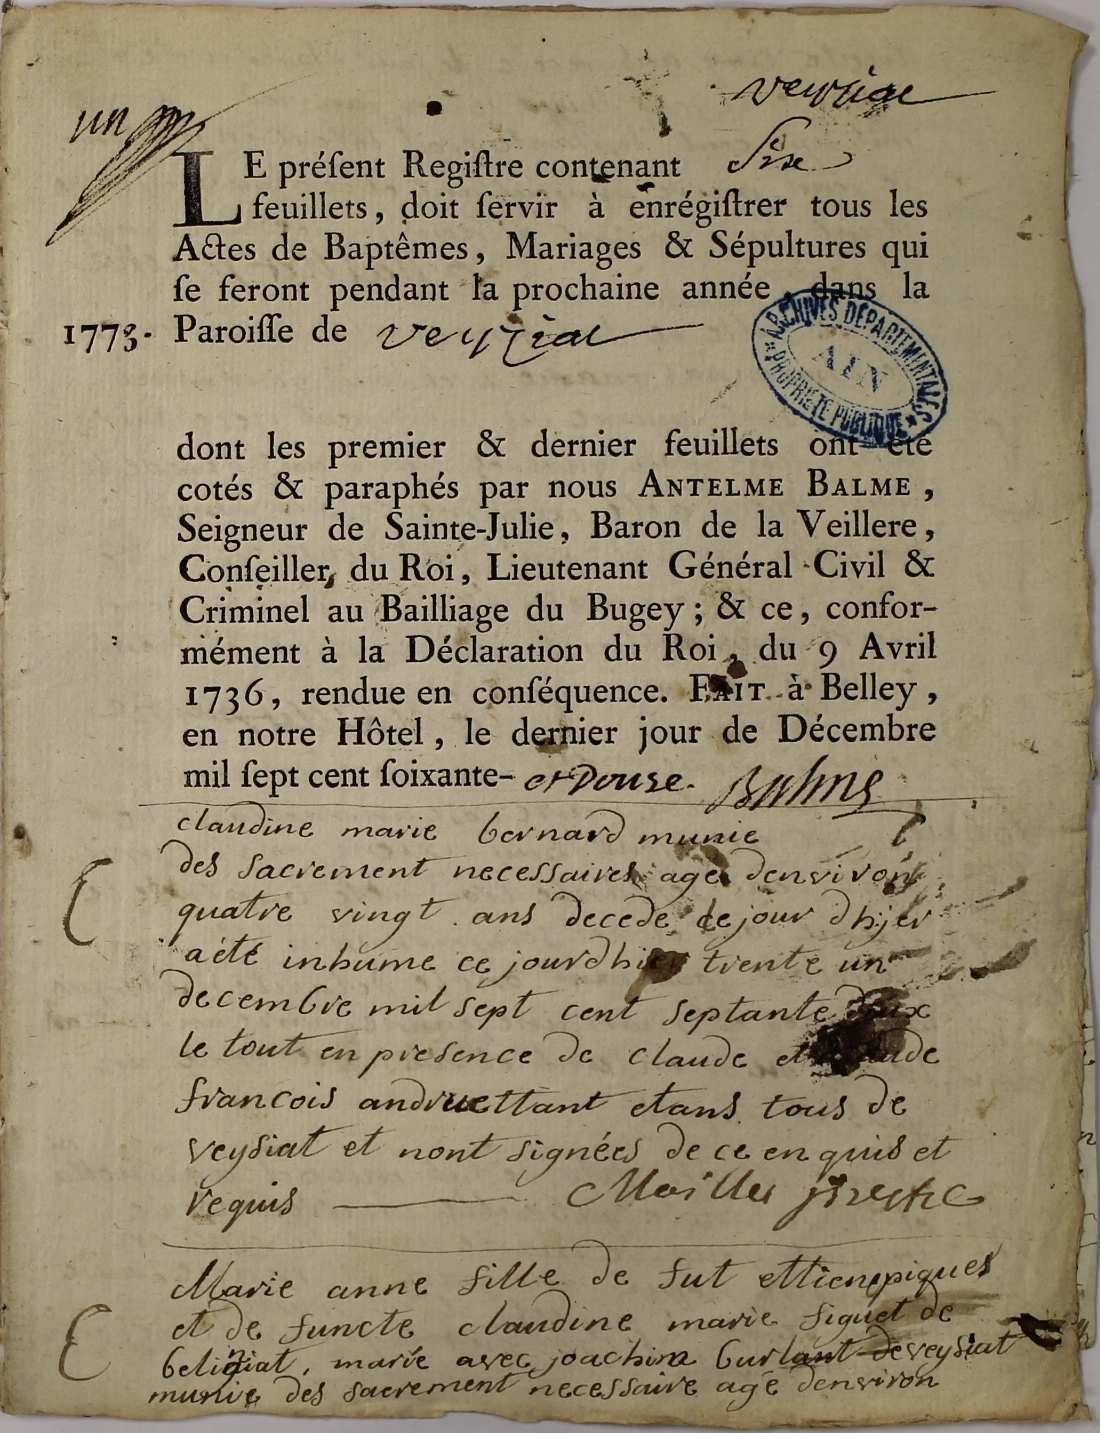 un
Six
LE préſent Regiſtre contenant
feuillets, doit ſervir à enrégiſtrer tous les
Actes de Baptêmes, Mariages & Sépultures qui
ſe feront pendant la prochaine année, dans la
1773. Paroiſſe de Veyziat
ARCHIVES DÉPARTEMENTALES
AIN
PROPRIÉTÉ PUBLIQUE
dont les premier & dernier feuillets ont été
cotés & paraphés par nous ANTELME BALME,
Seigneur de Sainte-Julie, Baron de la Veillere,
Conſeiller, du Roi, Lieutenant Général Civil &
Criminel au Bailliage du Bugey; & ce, confor-
mément à la Déclaration du Roi, du 9 Avril
1736, rendue en conſéquence. FAIT à Belley,
en notre Hôtel, le dernier jour de Décembre
mil ſept cent ſoixante- et Douze. Balme
claudine marie bernard munie
des sacrement necessaires age denviron
quatre vingt ans decede le jour dhjer
a été inhume ce jourdhier trente un
decembre mil sept cent septante deux
le tout en presence de claude et claude
francois andruettant etans tous de
veysiat et nont signées de ce en quis et
requis
Marie anne fille de fut ettiene piques
et de functe claudine marie figuet de
beligniat, marie avec joachim burlant de veysiat
munie des sacrement necessaire age denviron